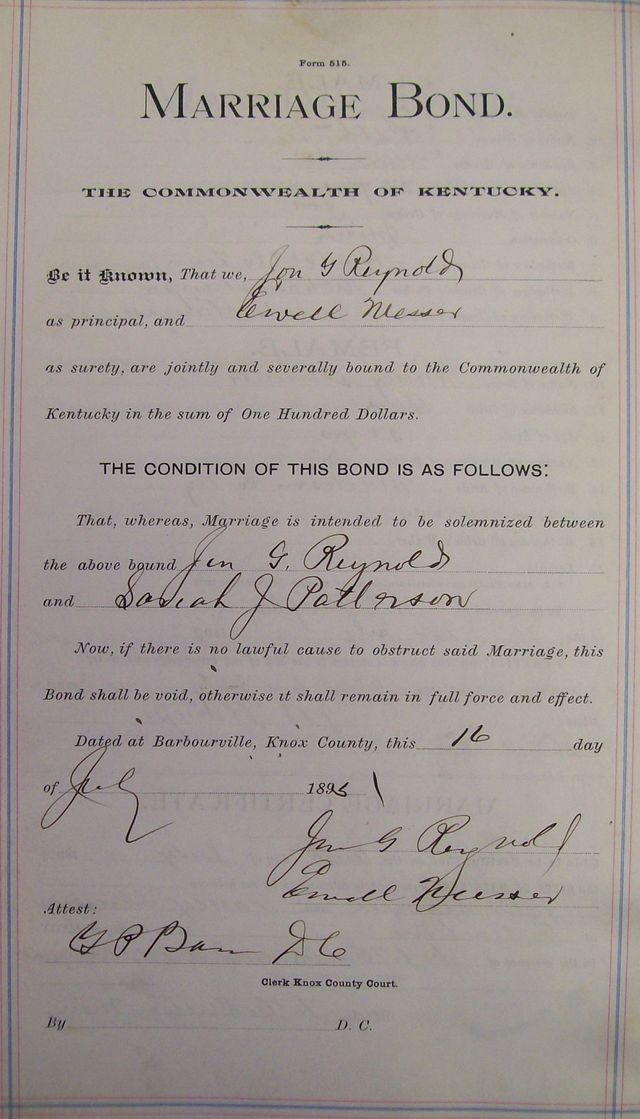 Form 515.
MARRIAGE BOND.
THE COMMONWEALTH OF KENTUCKY.
Be it Known, That we, Jon G Reynolds
as principal, and Ewell Messer
as surety, are jointly and severally bound to the Commonwealth of
Kentucky in the sum of One Hundred Dollars.
THE CONDITION OF THIS BOND IS AS FOLLOWS:
That, whereas, Marriage is intended to be solemnized between
the above bound Jon G. Reynolds
and Sariah J Patterson
Now, if there is no lawful cause to obstruct said Marriage, this
Bond shall be void, otherwise it shall remain in full force and effect.
Dated at Barbourville, Knox County, this 16 day
of July 189
G Reynold
Ewell Messer
Attest:
G P DC
Clerk Knox County Court.
By D. C.